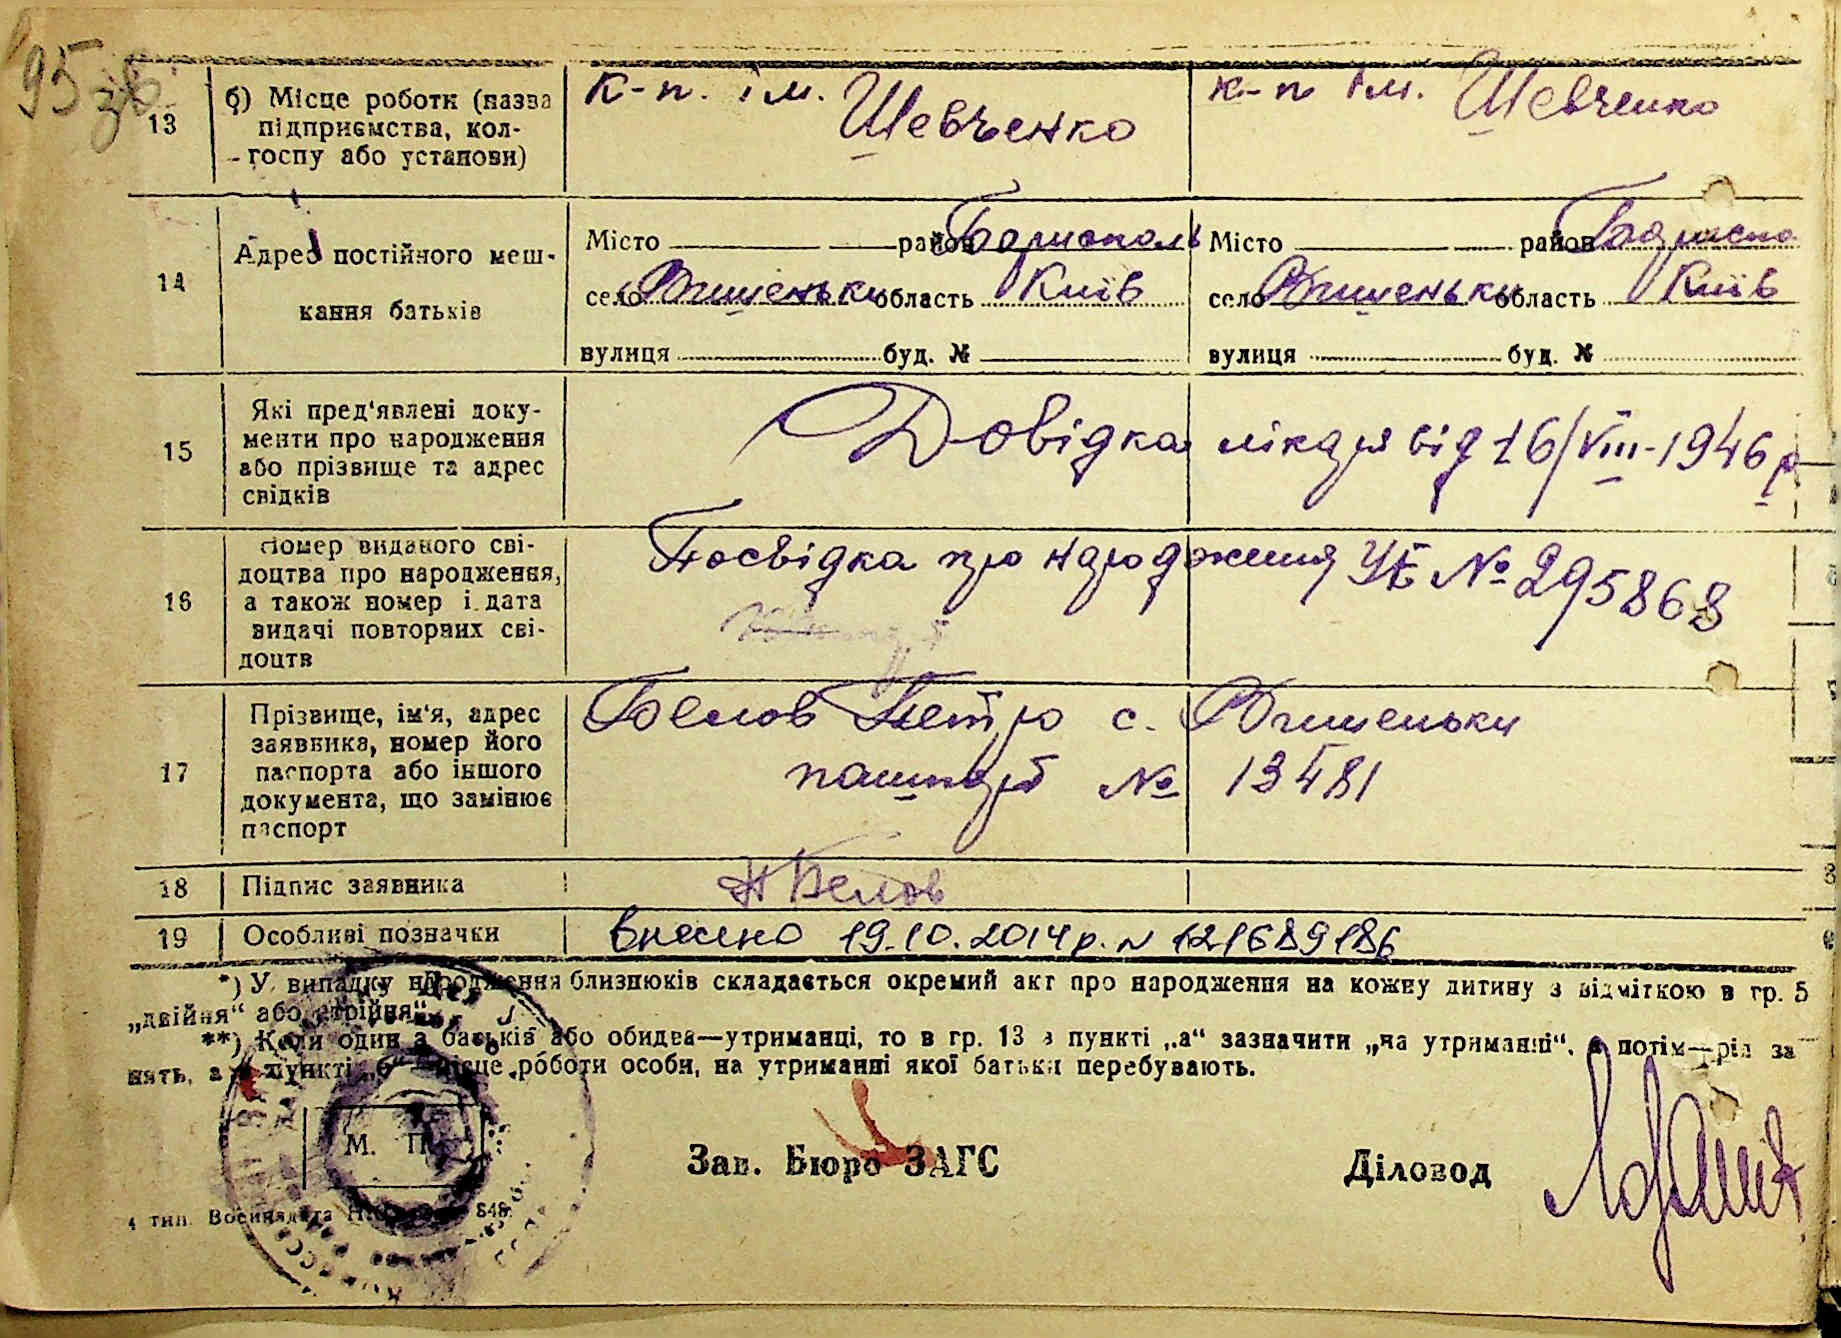 95 зв.
13 б) Місце роботи (назва підприємства, кол-госпу або установи)
к-п. ім. Шевченко
к-п ім. Шевченко
14 Адрес постійного меш-
кання батьків
Місто район Бориспол
Місто район Бориспо
село Вишеньки область Київ
село Вишеньки область Київ
вулиця буд. №
вулиця буд. №
15 Які пред'явлені доку-
менти про народження
або прізвище та адрес
свідків
Довідка лікаря від 16/VIII-1946 р
16 Номер виданого сві-
доцтва про народження,
а також номер і дата
видачі повторних сві-
доцтв
Посвідка про народження УЕ № 295868
17 Прізвище, ім'я, адрес
заявника, номер його
паспорта або іншого
документа, що замінює
паспорт
Белов Петро с. Вишеньки
пашпорт № 13481
18 Підпис заявника
Белов
19 Особливі позначки
Внесено 19.10.2014р. N 121689186
*) У випадку народження близнюків складається окремий акт про народження на кожну дитину з відміткою в гр. 5
„двійня“ або „трійня“.
**) Коли один з батьків або обидва—утриманці, то в гр. 13 в пункті „а“ зазначити „на утриманні“, а потім—рід за
нять, а в пункті „б“ місце роботи особи, на утриманні якої батьки перебувають.
М. П.
Зав. Бюро ЗАГС
Діловод
4 тип.